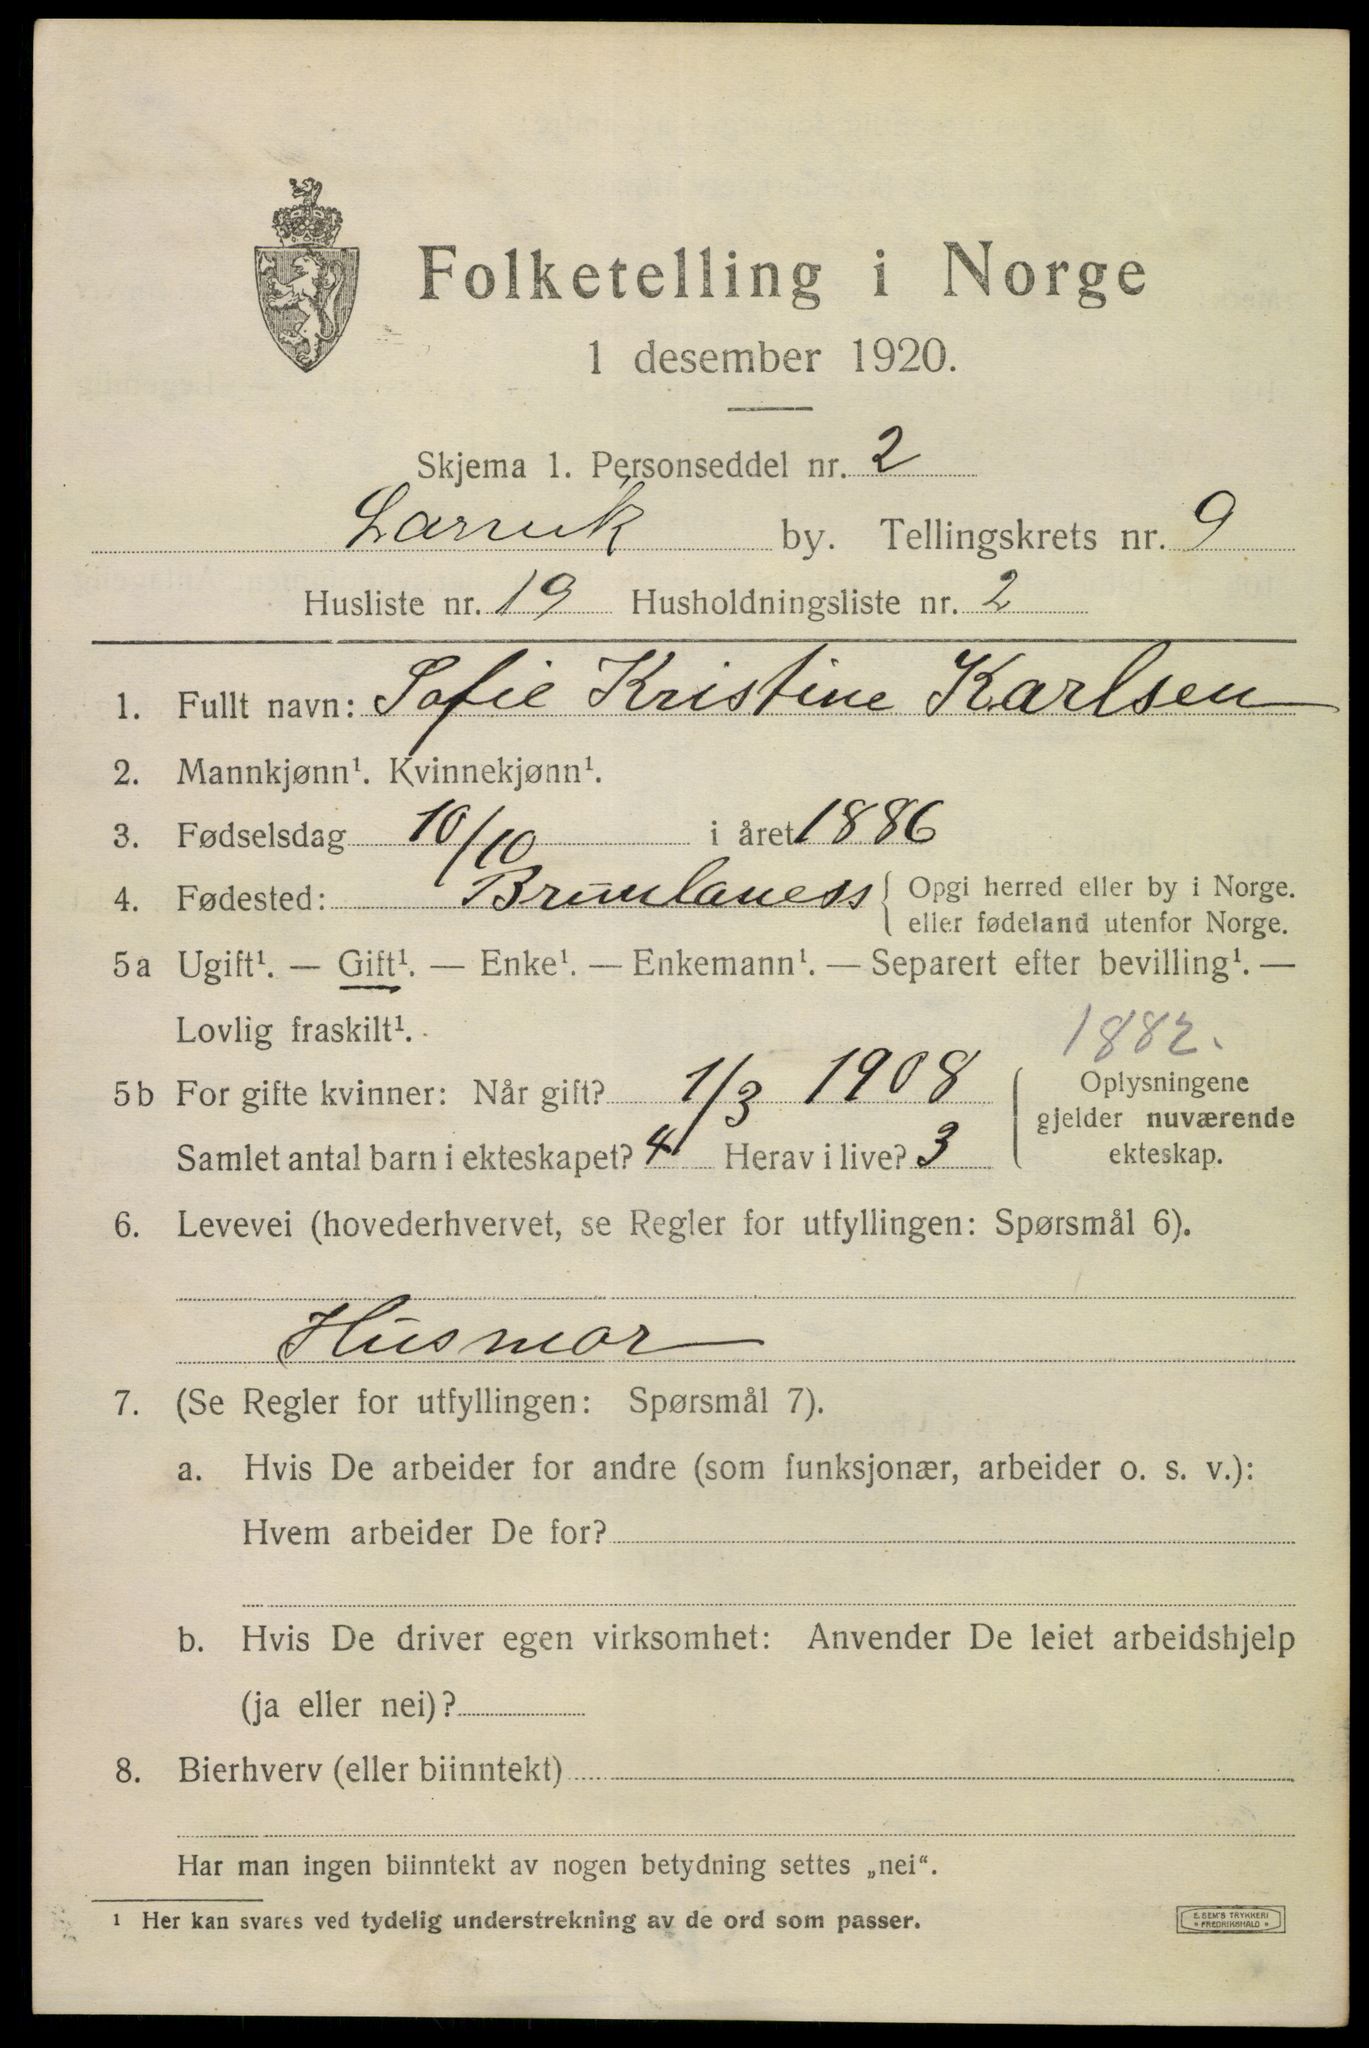 Folketelling i Norge
1 desember 1920.
Skjema 1. Personseddel nr. 2
Larvik by. Tellingskrets nr. 9
Husliste nr. 19 Husholdningsliste nr. 2
1. Fullt navn: Sofie Kristine Karlsen
2. Mannkjønn¹. Kvinnekjønn¹.
3. Fødselsdag 10/10 i året 1886
4. Fødested: Brunlaness { Opgi herred eller by i Norge.
eller fødeland utenfor Norge.
5a Ugift¹. — Gift¹. — Enke¹. — Enkemann¹. — Separert efter bevilling¹. —
Lovlig fraskilt¹.
1882.
5b For gifte kvinner: Når gift? 1/3 1908
Samlet antal barn i ekteskapet? 4 Herav i live? 3
Oplysningene
gjelder nuværende
ekteskap.
6. Levevei (hovederhvervet, se Regler for utfyllingen: Spørsmål 6).
Husmor
7. (Se Regler for utfyllingen: Spørsmål 7).
a. Hvis De arbeider for andre (som funksjonær, arbeider o. s. v.):
Hvem arbeider De for?
b. Hvis De driver egen virksomhet: Anvender De leiet arbeidshjelp
(ja eller nei)?
8. Bierhverv (eller biinntekt)
Har man ingen biinntekt av nogen betydning settes „nei“.
¹ Her kan svares ved tydelig understrekning av de ord som passer.
E. SEM'S TRYKKERI
» FREDRIKSHALD «